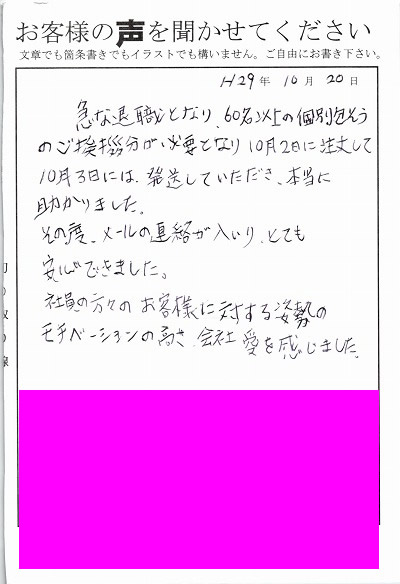 お客様の声を聞かせてください
文章でも箇条書きでもイラストでも構いません。ご自由にお書き下さい。
H29年 10月 20日
急な退職となり、60名以上の個別包そう
のご挨拶分が必要となり10月2日に注文して
10月3日には、発送していただき、本当に
助かりました。
その度、メールの連絡が入いり、とても
安心できました。
社員の方々のお客様に対する姿勢の
モチベーションの高さ、会社愛を感じました。